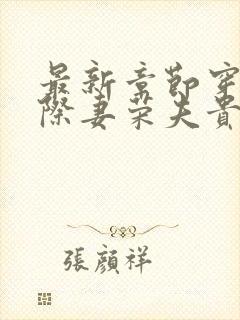 最新章節穿
際妻荣夫貴
張顏祥